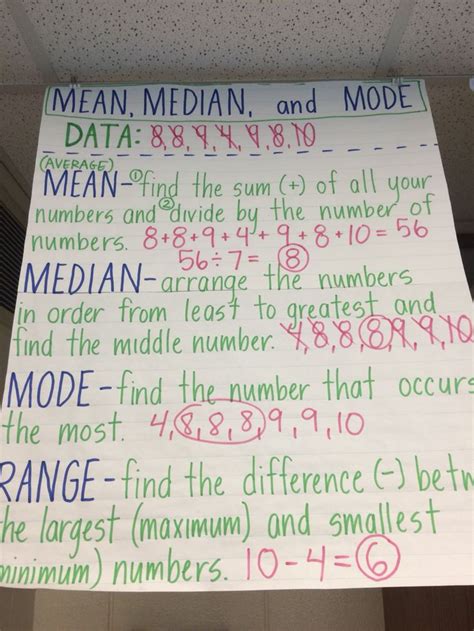 MEAN, MEDIAN, and MODE
DATA: 8,8,9,4,9,8,10
(AVERAGE)
MEAN-①find the sum (+) of all your
numbers and ②divide by the number of
numbers. 8+8+9+4+9+8+10=56
56÷7= 8
MEDIAN-arrange the numbers
in order from least to greatest and
find the middle number. 4,8,8,8,9,9,10
MODE-find the number that occurs
the most. 4,8,8,8,9,9,10
RANGE-find the difference (-) betw
he largest (maximum) and smallest
minimum) numbers. 10-4=6